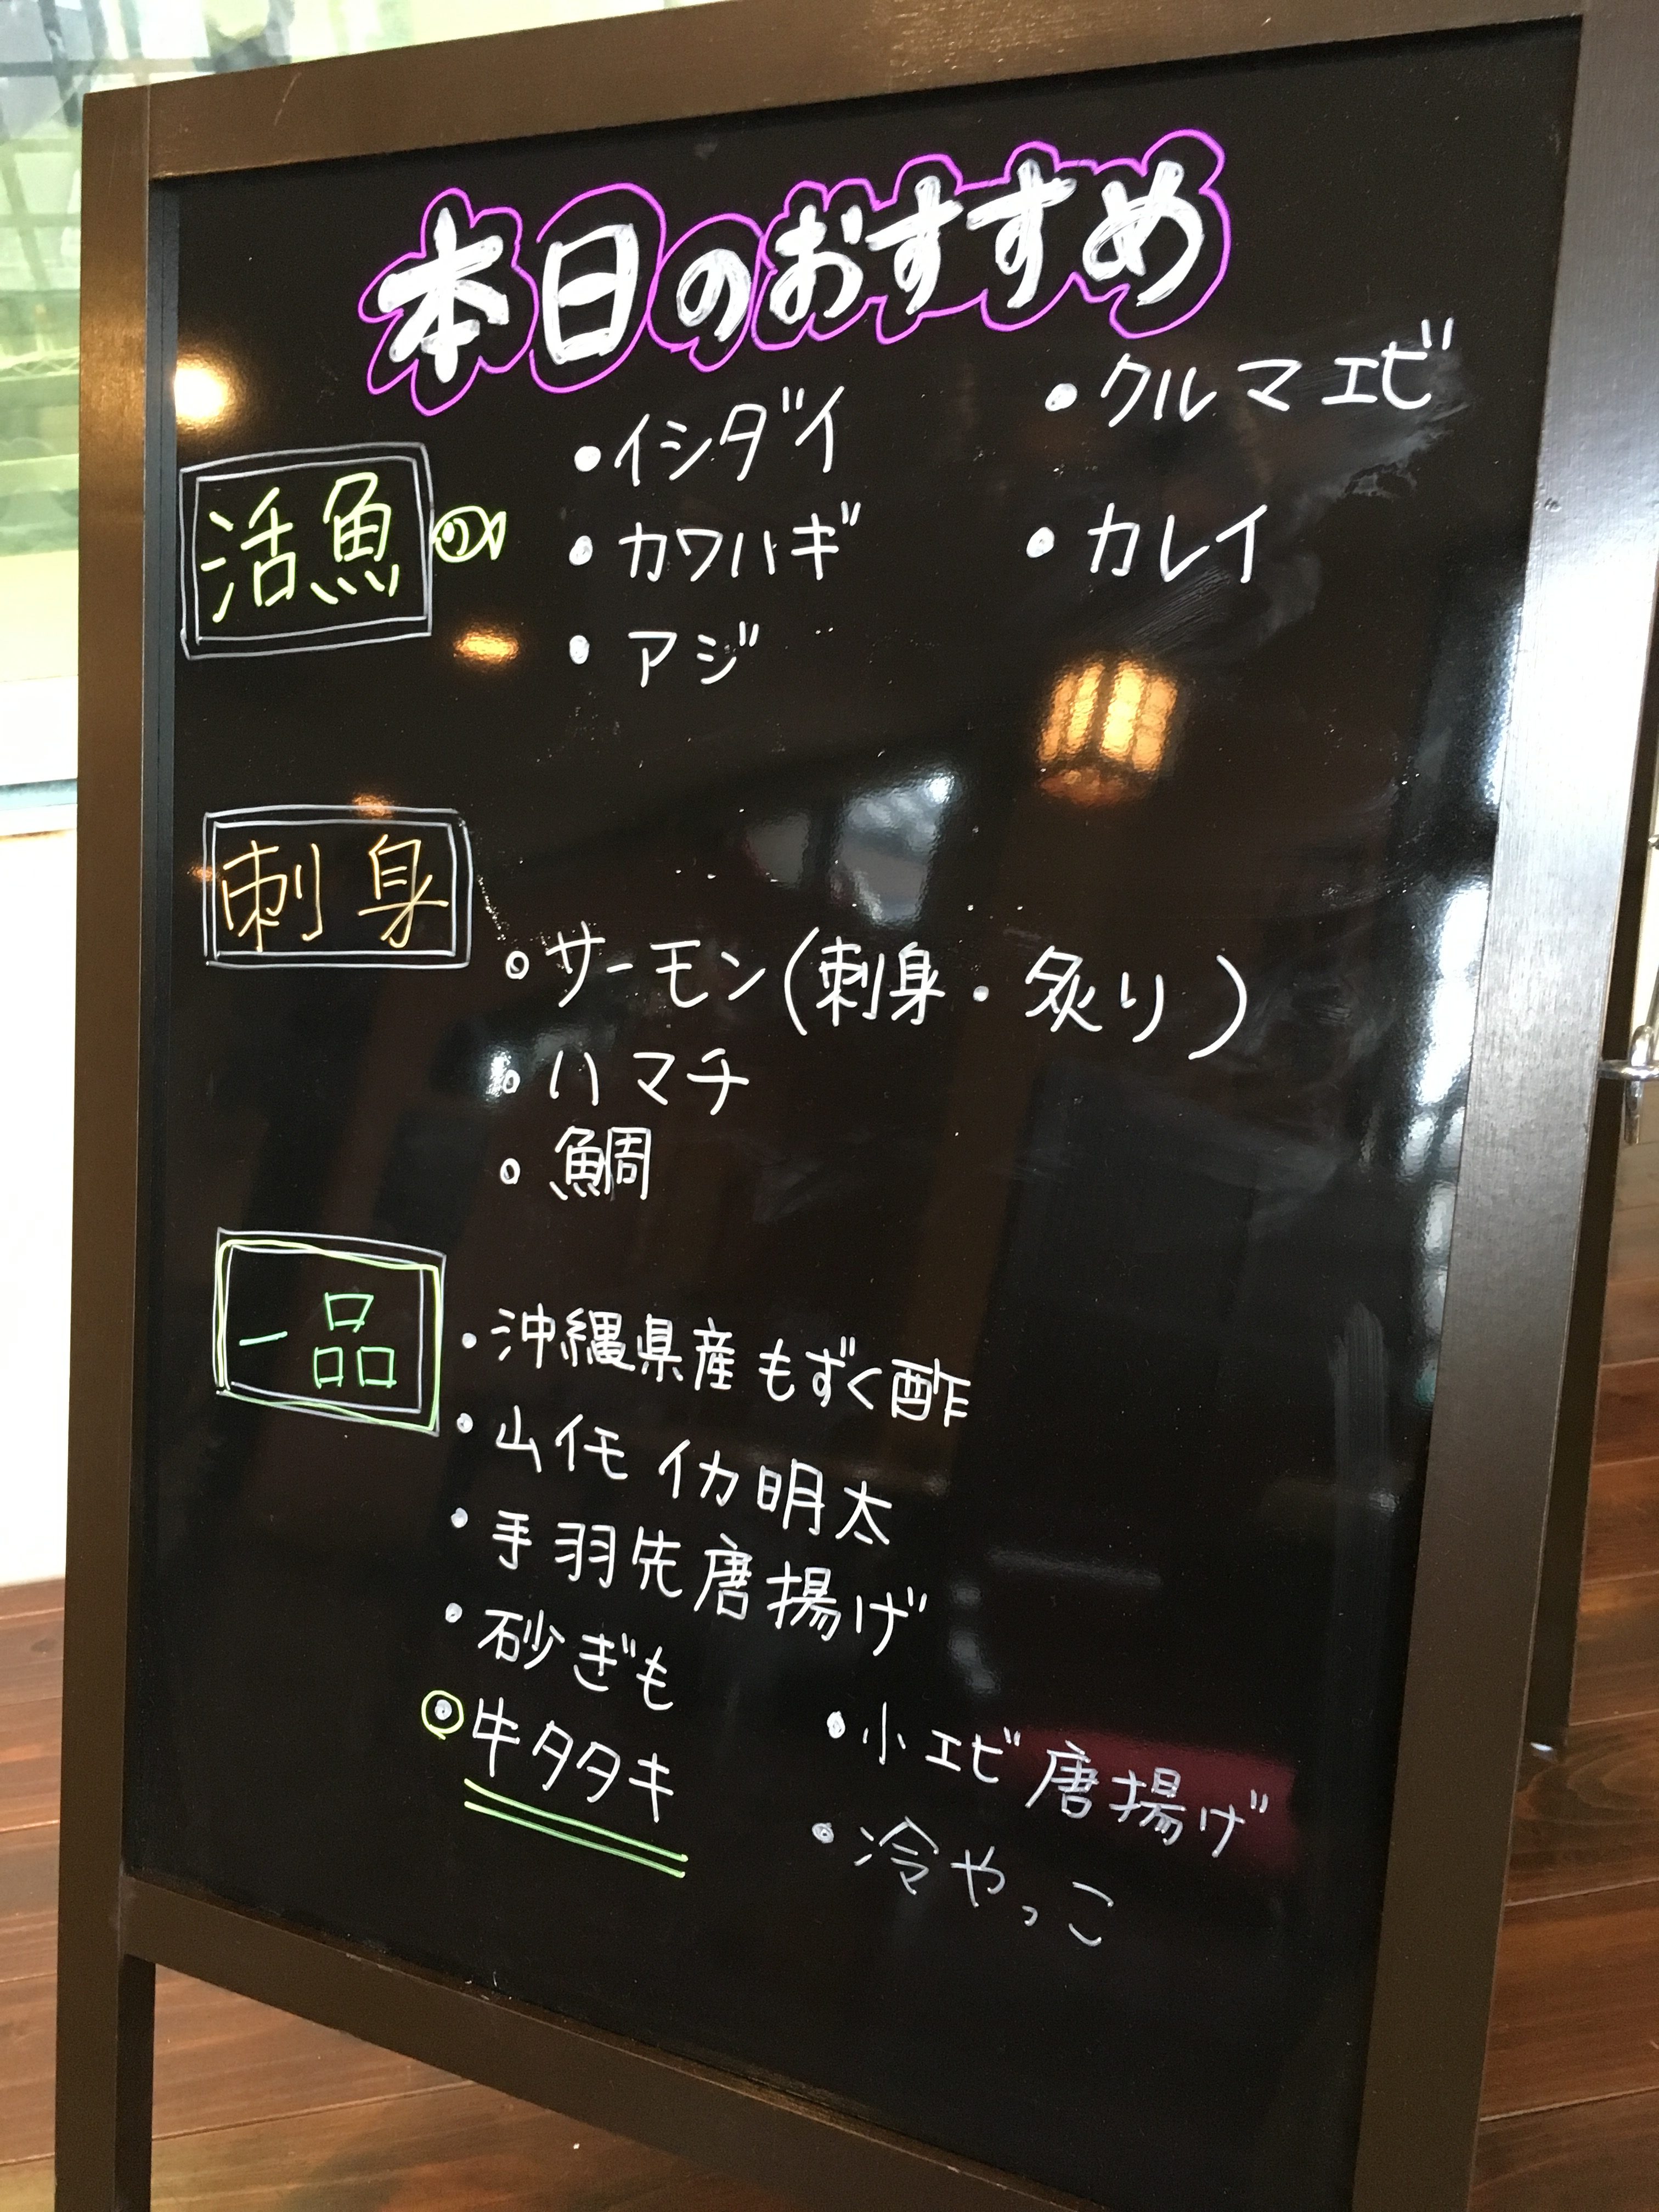 本日のおすすめ
活魚
・イシダイ
・カワハギ
・アジ
・クルマエビ
・カレイ
刺身
・サーモン(刺身・炙り)
・ハマチ
・鯛
一品
・沖縄県産もずく酢
・山イモイカ明太
・手羽先唐揚げ
・砂ぎも
・牛タタキ
・小エビ唐揚げ
・冷やっこ